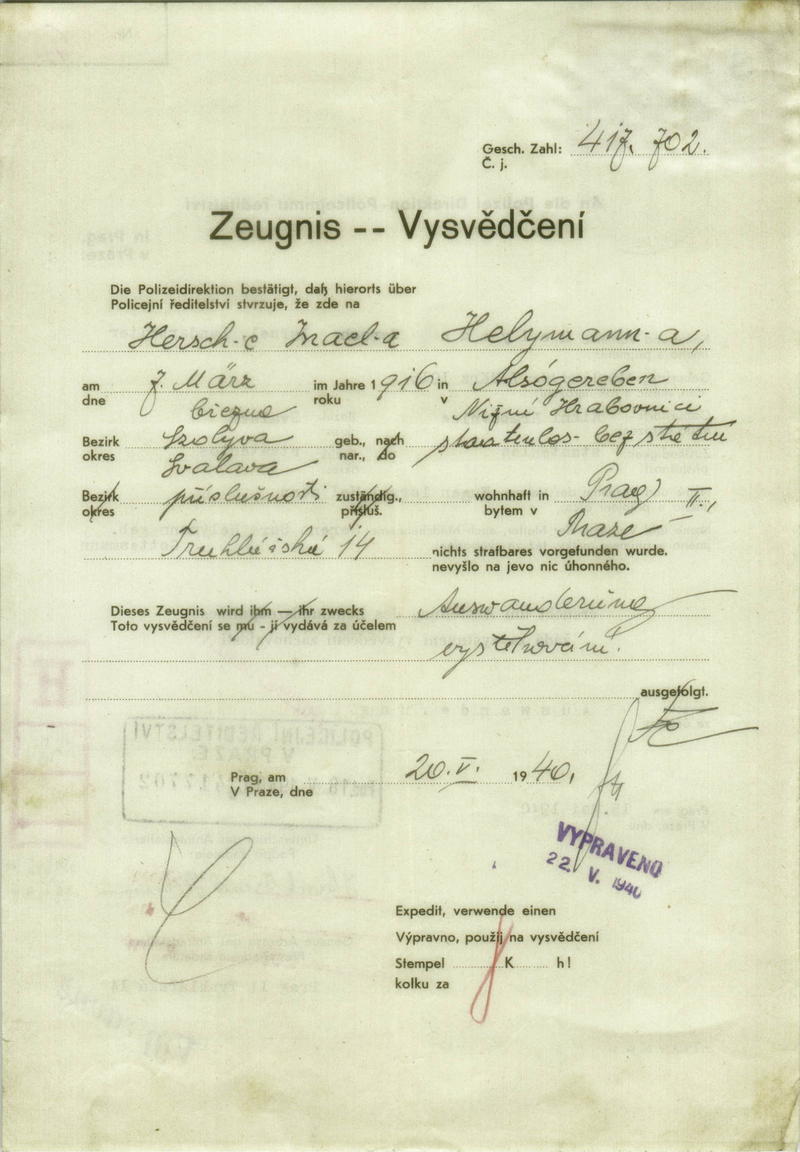 Gesch. Zahl: 417. 702.
Č. j.
Zeugnis -- Vysvědčení
Die Polizeidirektion bestätigt, daß hierorts über
Policejní ředitelství stvrzuje, že zde na
Hersch-e Izrael-a Helymann-a,
am 7. März im Jahre 1916 in Alsógereben
dne března roku v Nižní Hrabovnici
Bezirk Szolyva geb., nach staatenlos - bez státní
okres Svalava nar., do
Bezirk příslušnosti zuständig., wohnhaft in Prag II.,
okres přísluš. bytem v Praze
Truhlářská 14 nichts strafbares vorgefunden wurde.
nevyšlo na jevo nic úhonného.
Dieses Zeugnis wird ihm — ihr zwecks Auswanderung
Toto vysvědčení se mu - jí vydává za účelem
vystěhování.
ausgefolgt.
POLICEJNÍ ŘEDITELSTVÍ
V PRAZE
Prag, am 20. V. 1940,
V Praze, dne
VYPRAVENO
22. V. 1940
Expedit, verwende einen
Výpravno, použij na vysvědčení
Stempel K h!
kolku za